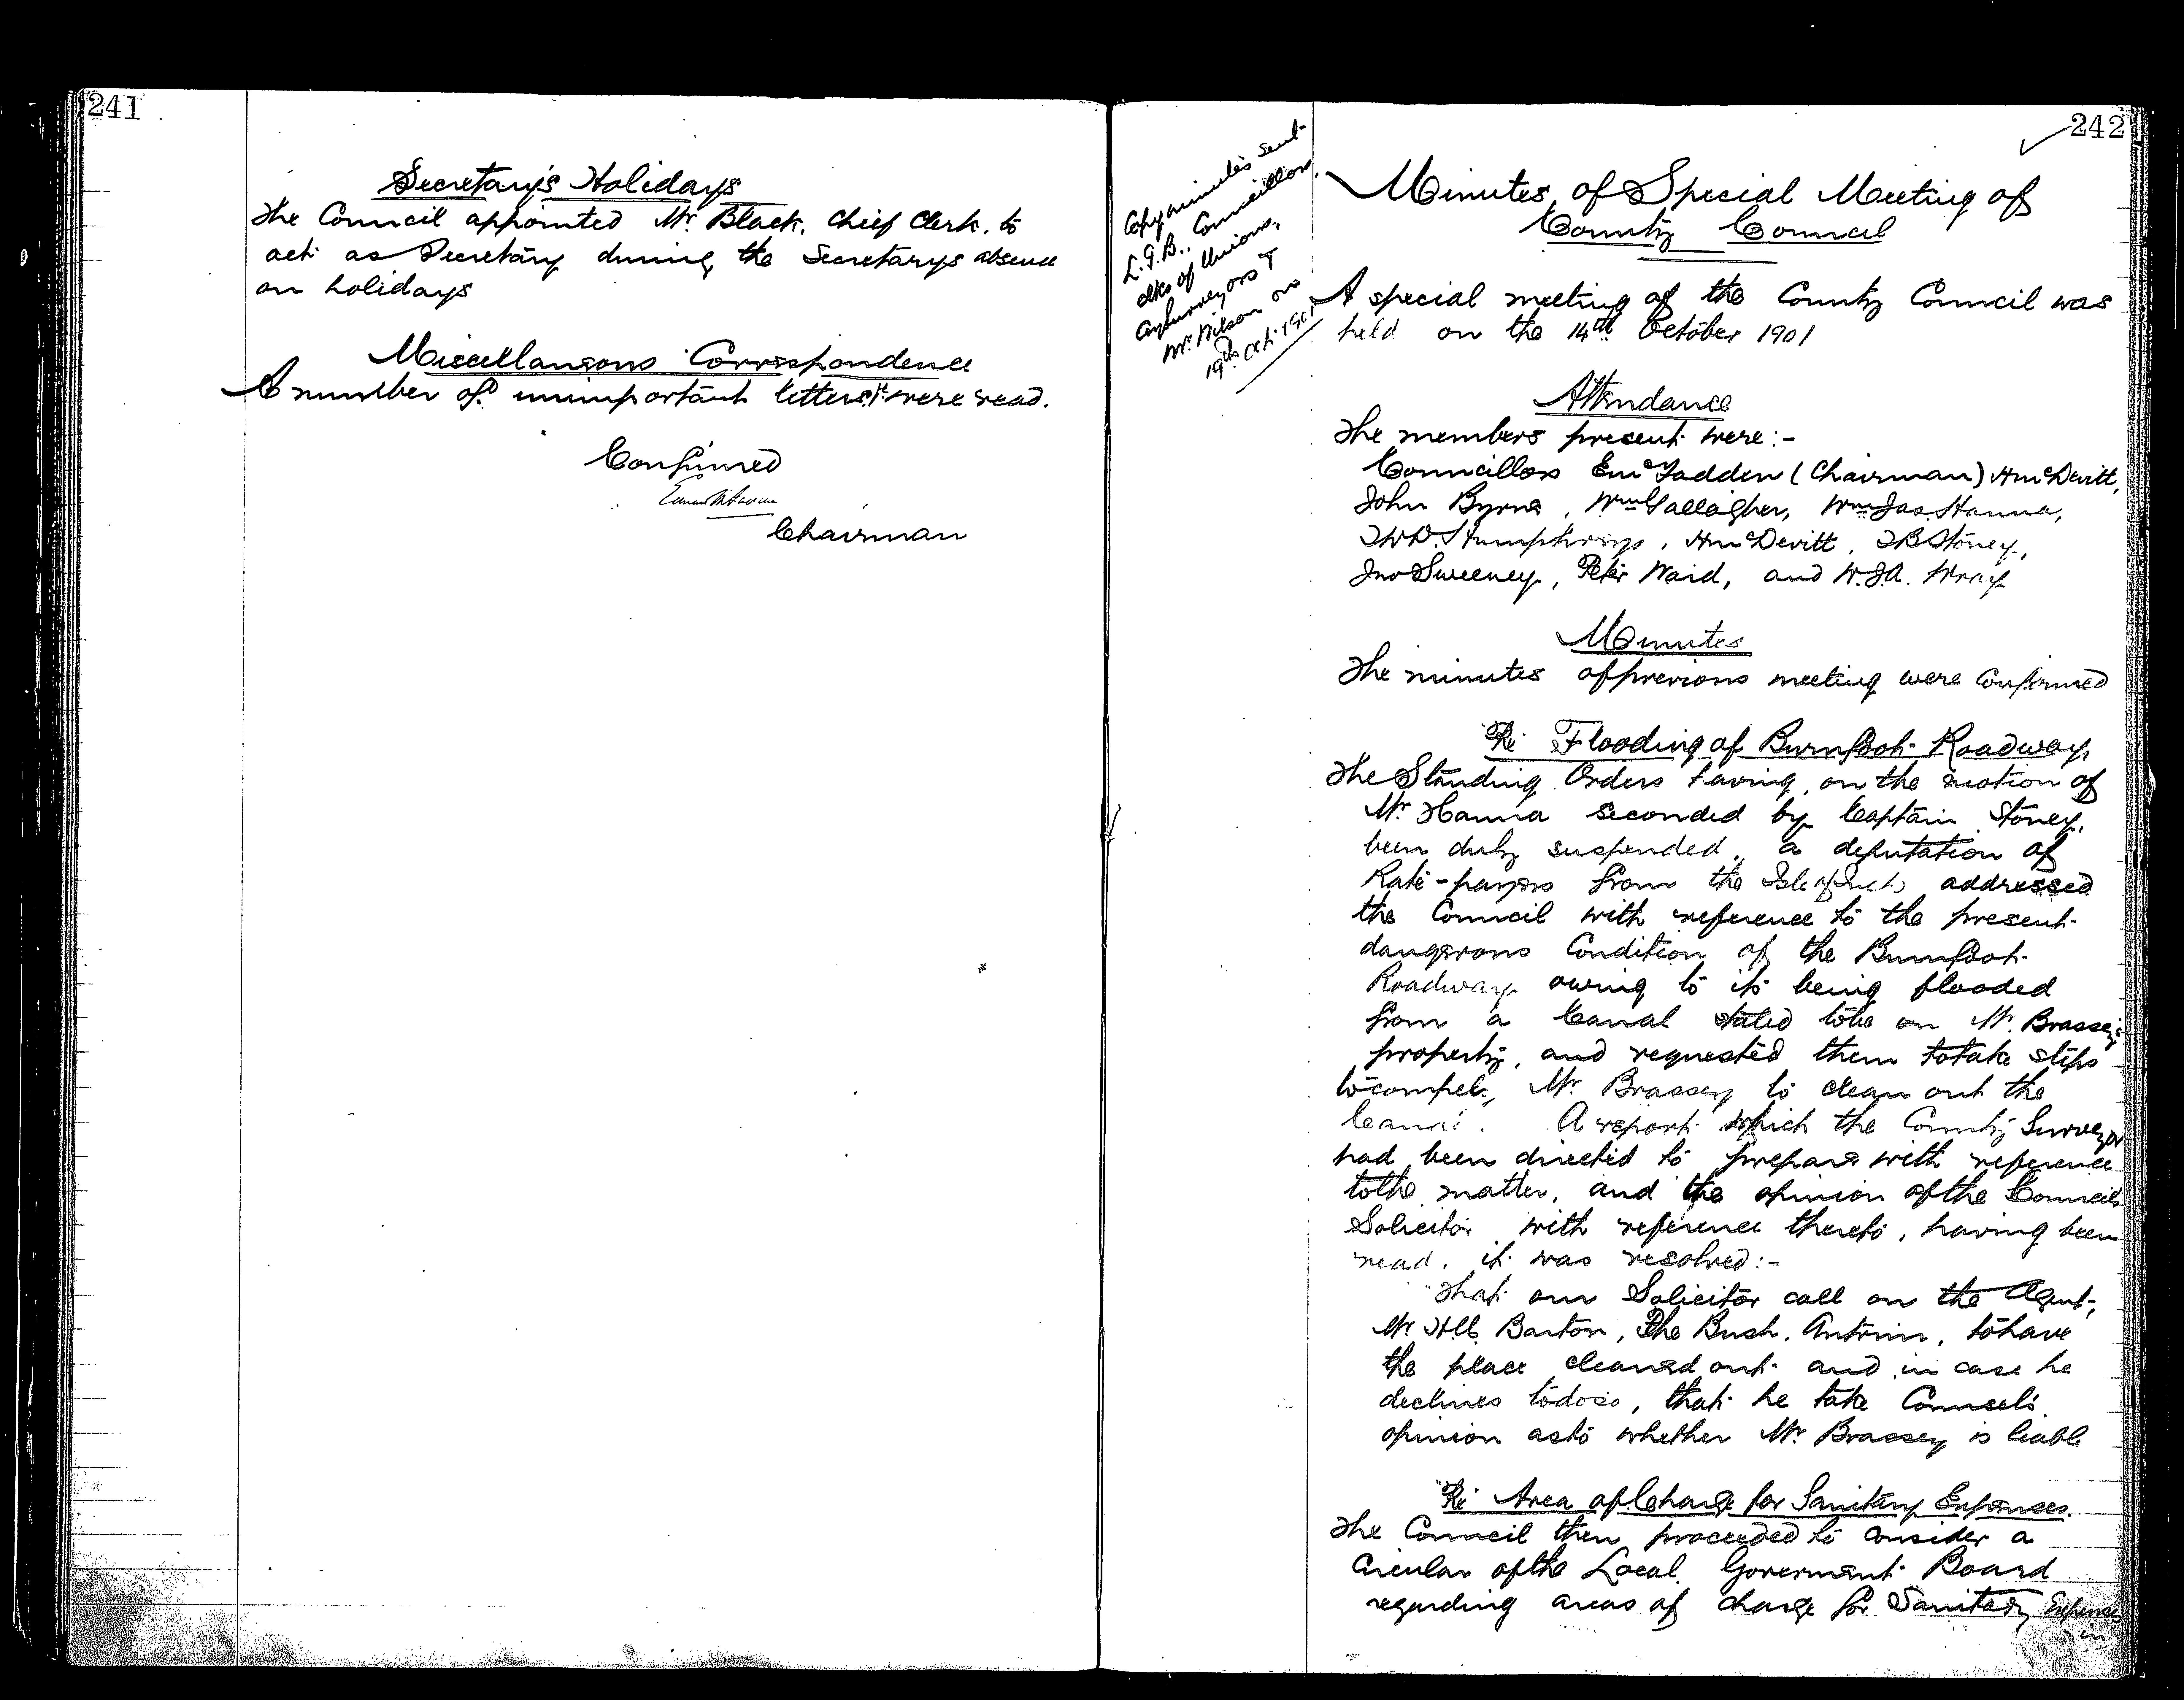 241
Secretary's Holidays
The Council appointed Mr. Black, Chief Clerk, to
act as Secretary during the Secretarys absence
on holidays
Miscellaneous Correspondence
A number of unimportant letters were read.
Confirmed
Chairman
242
Copy minutes sent
L.G.B., Councillors,
clks of Unions,
Co surveyors &
Mr. Wilson on
19th Oct. 1901
Minutes of Special Meeting of
County Council
A special meeting of the County Council was
held on the 14th October 1901
Attendance
The members present were:-
Councillors E McFadden (Chairman) H McDevitt,
John Byrne, Wm Gallagher, Wm Jas. Hanna,
Humphreys, H McDevitt, Stoney,
Jno Sweeney, Peter Ward, and W.J.A. Wray
Minutes
The minutes of previous meeting were confirmed
Re Flooding of Burnfoot Roadway
The Standing Orders having, on the motion of
Mr. Hanna seconded by Captain Stoney,
been duly suspended, a deputation of
Rate-payers from the Isle of Inch addressed
the Council with reference to the present
dangerous condition of the Burnfoot
Roadway owing to its being flooded
from a Canal stated to be on Mr. Brassey's
property, and requested them to take steps
to compel, Mr. Brassey to clean out the
Canal. A report which the County Surveyor
had been directed to prepare with reference
to the matter, and the opinion of the Councils
Solicitor with reference thereto, having been
read, it was resolved:-
That our Solicitor call on the Agent,
Mr. Barton, The Bush, Antrim, to have
the place cleaned out and in case he
declines to do so, that he take Counsel's
opinion as to whether Mr. Brassey is liable
Re Area of Charge for Sanitary Expenses.
The Council then proceeded to consider a
Circular of the Local Goverment Board
regarding areas of charge for Sanitary Expenses
in